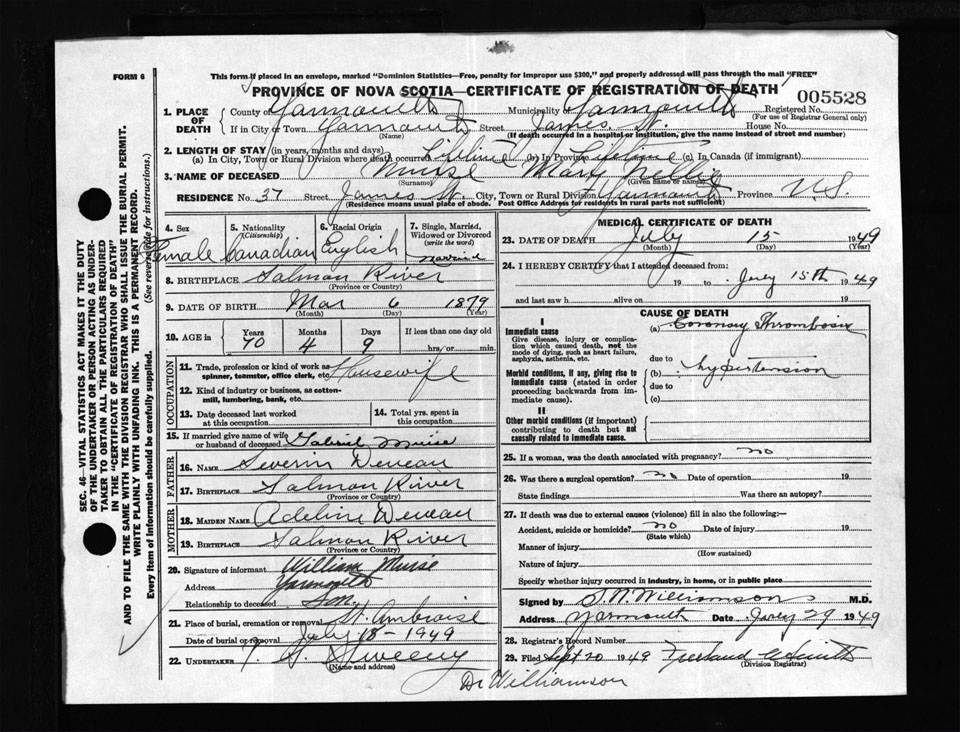 FORM 6
This form if placed in an envelope, marked "Dominion Statistics—Free, penalty for improper use $300," and properly addressed will pass through the mail "FREE"
PROVINCE OF NOVA SCOTIA—CERTIFICATE OF REGISTRATION OF DEATH
005528
1. PLACE OF DEATH
County of Yarmouth Municipality of Yarmouth Registered No.
(For use of Registrar General only)
If in City or Town Yarmouth Street James St. House No.
(Name) (If death occurred in a hospital or institution, give the name instead of street and number)
2. LENGTH OF STAY (in years, months and days)
(a) In City, Town or Rural Division where death occurred Lifetime (b) In Province Lifetime (c) In Canada (if immigrant)
3. NAME OF DECEASED Muise Mary Nellie
(Surname) (Given name or names)
RESIDENCE No. 37 Street James St. City, Town or Rural Division Yarmouth Province N.S.
(Residence means usual place of abode. Post Office Address for residents in rural parts not sufficient)
4. Sex 5. Nationality (Citizenship) 6. Racial Origin 7. Single, Married, Widowed or Divorced (write the word)
Female Canadian English Married
8. BIRTHPLACE Salmon River
(Province or Country)
9. DATE OF BIRTH Mar 6 1879
(Month) (Day) (Year)
10. AGE in Years Months Days If less than one day old
70 4 9 hrs/or min.
OCCUPATION
11. Trade, profession or kind of work as spinner, teamster, office clerk, etc. Housewife
12. Kind of industry or business, as cotton-mill, lumbering, bank, etc.
13. Date deceased last worked at this occupation
14. Total yrs. spent in this occupation
15. If married give name of wife or husband of deceased Gabriel Muise
FATHER
16. NAME Severin Deveau
17. BIRTHPLACE Salmon River
(Province or Country)
MOTHER
18. MAIDEN NAME Adeline Deveau
19. BIRTHPLACE Salmon River
(Province or Country)
20. Signature of informant William Muise
Address Yarmouth
Relationship to deceased Son
21. Place of burial, cremation or removal St. Ambroise
Date of burial or removal July 18—1949
22. UNDERTAKER Sweeny
(Name and address)
MEDICAL CERTIFICATE OF DEATH
23. DATE OF DEATH July 15 1949
(Month) (Day) (Year)
24. I HEREBY CERTIFY that I attended deceased from:
19 to July 15th 1949
and last saw h alive on 19
CAUSE OF DEATH
I
Immediate cause
Give disease, injury or complication which caused death, not the mode of dying, such as heart failure, asphyxia, asthenia, etc.
(a) Coronary Thrombosis
due to
Morbid conditions, if any, giving rise to immediate cause (stated in order proceeding backwards from immediate cause).
(b) hypertension
due to
(c)
II
Other morbid conditions (if important) contributing to death but not causally related to immediate cause.
25. If a woman, was the death associated with pregnancy? no
26. Was there a surgical operation? no Date of operation 19
State findings Was there an autopsy?
27. If death was due to external causes (violence) fill in also the following:—
Accident, suicide or homicide? no Date of injury 19
(State which)
Manner of injury
(How sustained)
Nature of injury
Specify whether injury occurred in industry, in home, or in public place
Signed by S.W. Williamson M.D.
Address Yarmouth Date July 29 1949
28. Registrar's Record Number
29. Filed Sept 20 1949 Smith
(Division Registrar)
Dr Williamson
SEC. 46—VITAL STATISTICS ACT MAKES IT THE DUTY
OF THE UNDERTAKER OR PERSON ACTING AS UNDER-
TAKER TO OBTAIN ALL THE PARTICULARS REQUIRED
IN THE "CERTIFICATE OF REGISTRATION OF DEATH"
AND TO FILE THE SAME WITH THE DIVISION REGISTRAR WHO SHALL ISSUE THE BURIAL PERMIT.
WRITE PLAINLY WITH UNFADING INK. THIS IS A PERMANENT RECORD.
Every item of information should be carefully supplied. (See reverse side for instructions.)